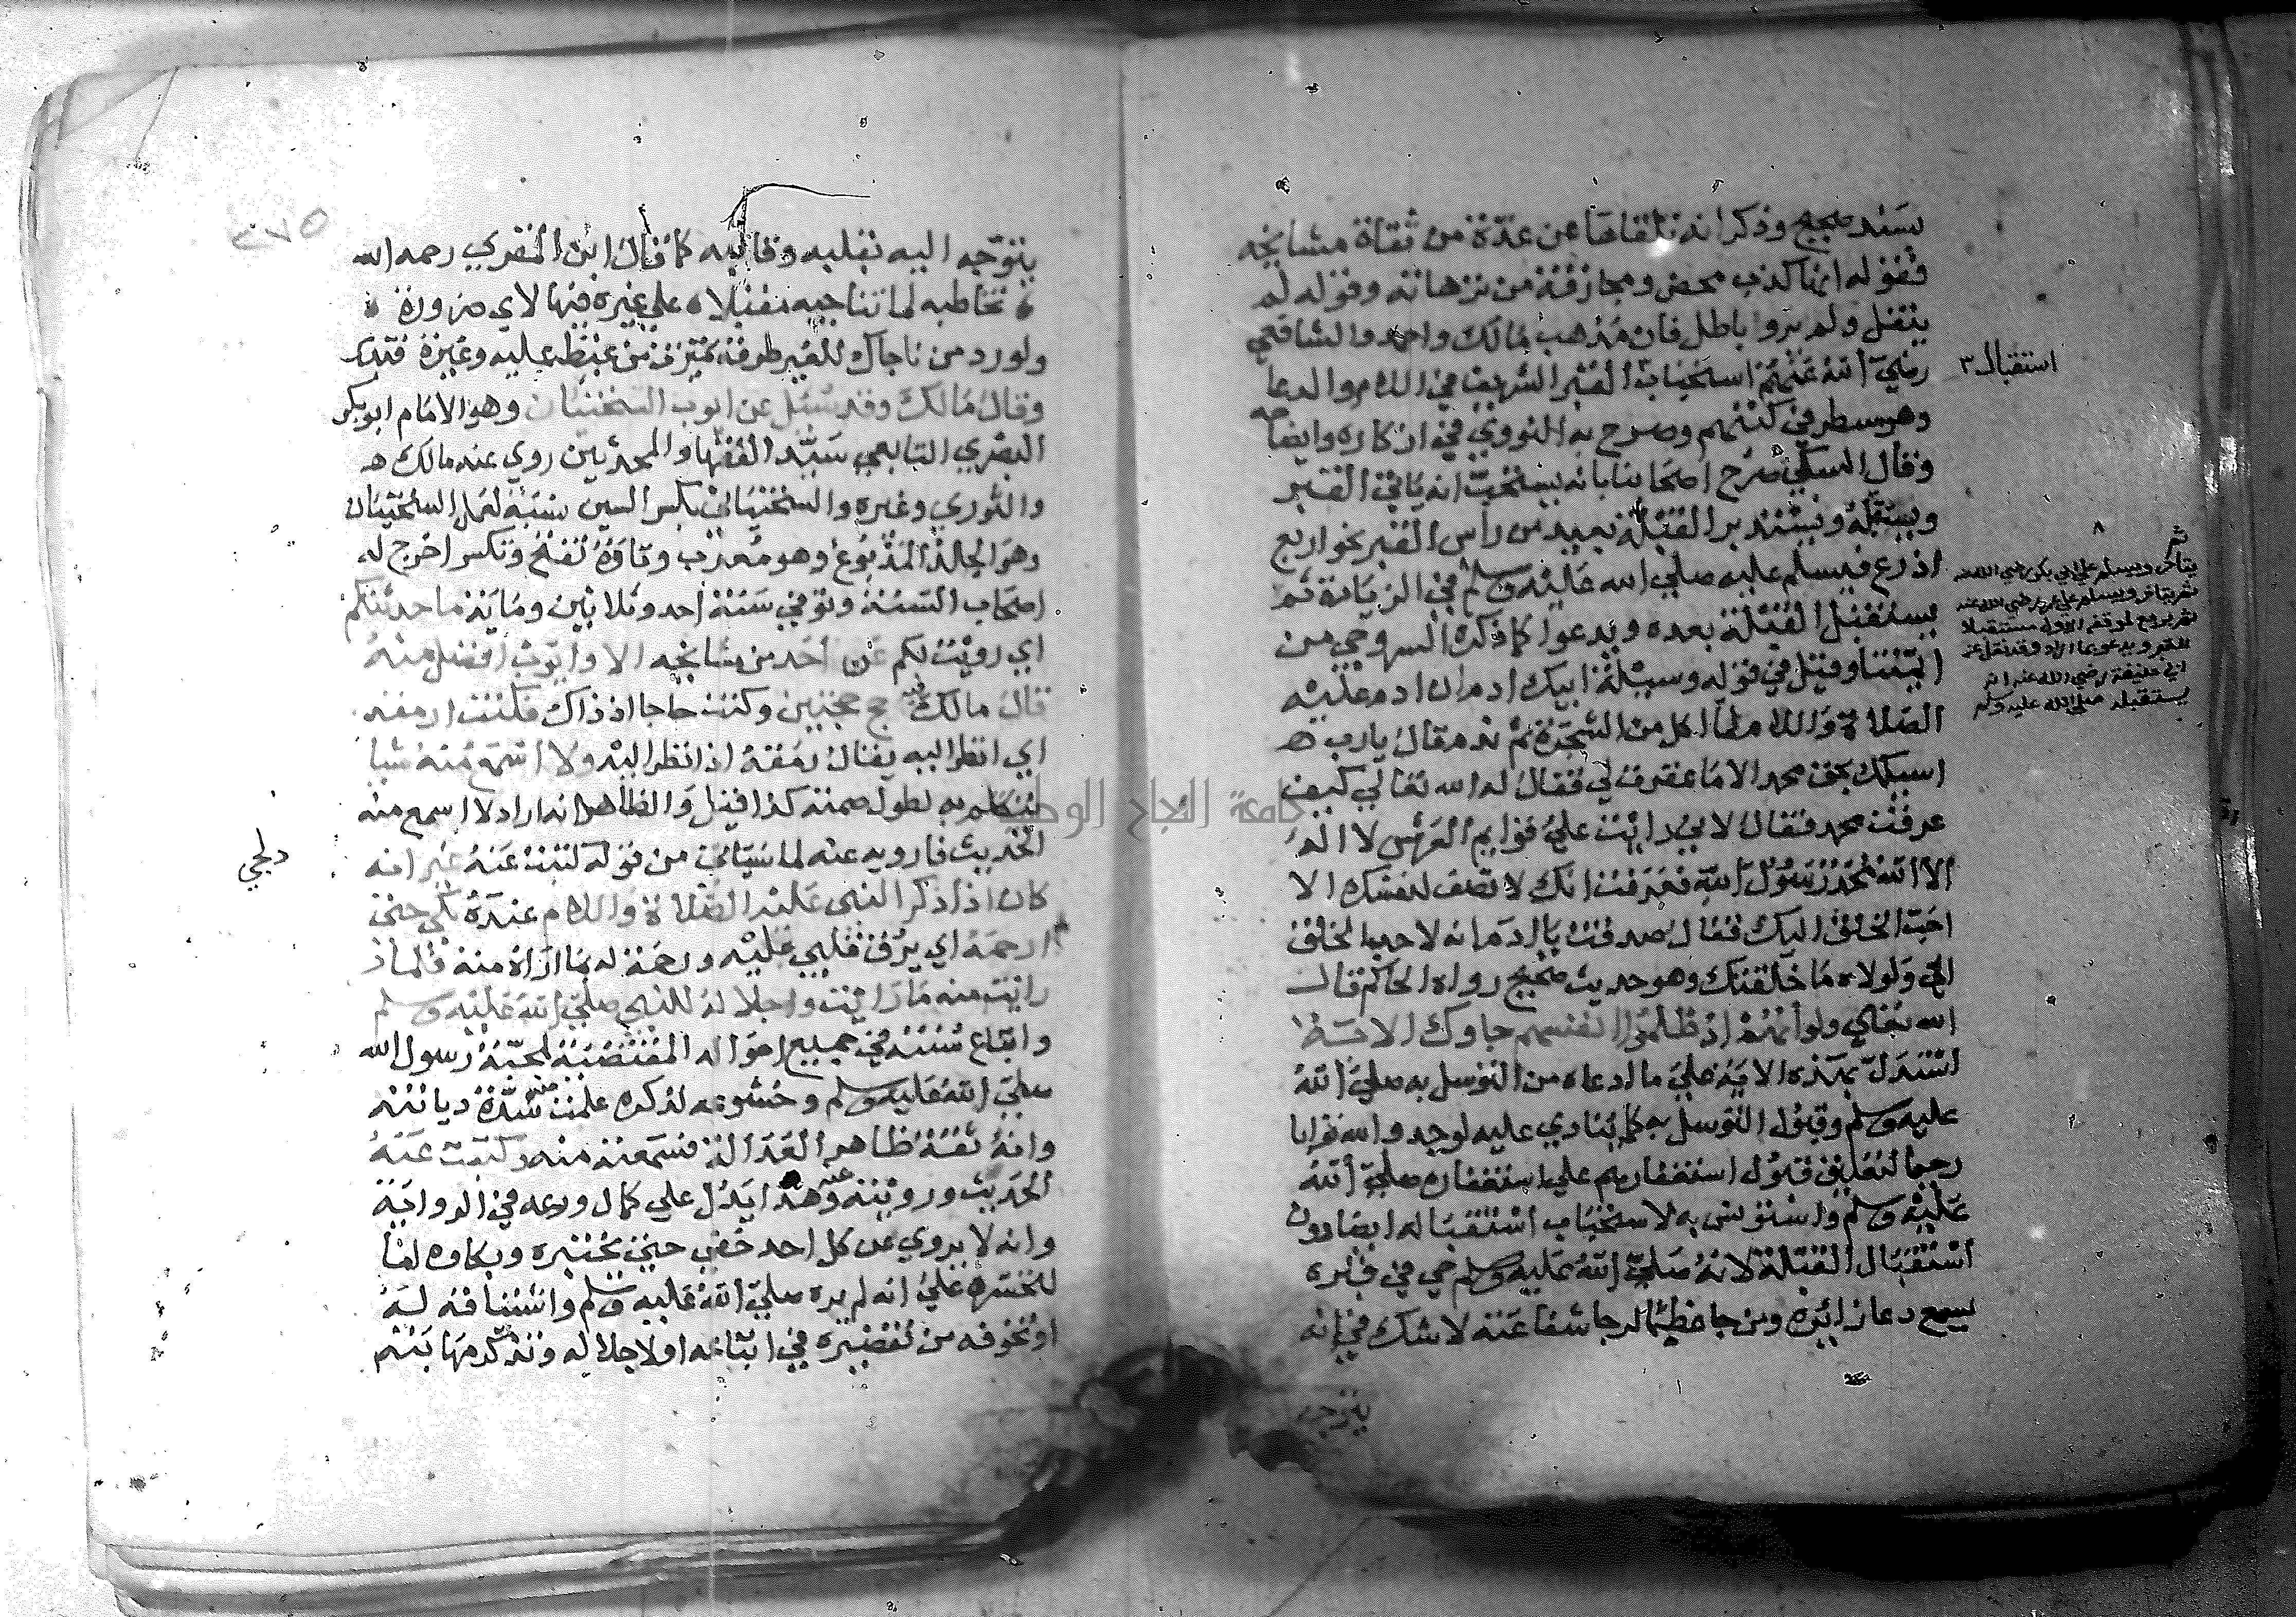 بسند صحيح وذكر انه تلقاها عن عدة من ثقاة مشايخه
فقوله انها كذب محض ومجازفة من نزهاته وقوله لم
ينقل ولم يروا باطل فان مذهب مالك واحمد والشافعي
رضي الله عنهم استحباب القبر الشريف في السلام والدعا
استقبال ٣
وهو مسطر في كتبهم وصرح به النووي في اذكاره وايضاحه
وقال السبكي صرح اصحابنا بانه يستحب انه ياتي القبر
ويستقبله ويستدبر القبلة بعيد من راس القبر نحو اربع
اذرع فيسلم عليه صلي الله عليه وسلم في الزيادة ثم
يستقبل القبلة بعده ويدعوا كما ذكره السروجي من
ثم
يتاخر ويسلم علي ابي بكر رضي الله عنه
ثم يتاخر ويسلم علي عمر رضي الله عنه
ثم يروح لموقفه الاول مستقبلا
القبر ويدعو بما اراد وقد نقل عن
ابي حنيفة رضي الله عنه انه
يستقبله صلي الله عليه وسلم
ايمتنا وقيل في قوله وسيلة ابيك ادم ان ادم عليه
الصلاة والسلام لما اكل من الشجرة ثم ندم قال يارب
اسيلك بحق محمد الا ما غفرت لي فقال له الله تعالي كيف
عرفت محمد فقال لاني رايت علي قوايم العرش لا اله
الا الله محمد رسول الله فعرفت انك لا تضف لنفسك الا
احب الخلق اليك فقال صدقت يا ادم انه لاحب الخلق
الي ولولاه ما خلقتك وهو حديث صحيح رواه الحاكم قال
الله تعالي ولو انهم اذ ظلموا انفسهم جاوك الاية
استدل بهذه الاية علي ما ادعاه من التوسل به صلي الله
عليه وسلم وقبول التوسل به كما ينادي عليه لوجدوا الله توابا
رحيما لتعليق قبول استغفارهم علي استغفاره صلي الله
عليه وسلم واستونس به لاستحباب استقباله ايضا دون
استقبال القبلة لانه صلي الله عليه وسلم حي في قبره
يسمع دعا زائره ومن جا عظيما لرجا شفاعته لا شك في انه
يتوجه
٣٧٥
يتوجه اليه بقلبه وقالبه كما قال ابن المقري رحمه الله
تخاطبه لما تناجيه مقبلا علي غيره فيها لاي ضرورة
ولو رد من ناجاك للغير طرفه تميزت من غيظ عليه وغيرة فتدبر
وقال مالك وقد سئل عن ايوب السختيان وهو الامام ابو بكر
البصري التابعي سيد الفقها والمحدثين روي عنه مالك
والثوري وغيره والسختياني بكسر السين نسبة لعمل السختيان
وهو الجلد المدبوغ وهو معرب وتاؤه تفتح وتكسر اخرج له
اصحاب السنة وتوفي سنة احد وثلاثين ومائة ما حدثتكم
اي رويت لكم عن احد من مشايخه الا وايوب افضل منه
قال مالك حج حجتين وكنت حاجا اذ ذاك فكنت ارمقه
اي انظر اليه يقال رمقه اذا نظر اليه ولا اسمع منه شيا
يتكلم به لطول صمته كذا قيل والظاهر انه اراد لا اسمع منه
الحديث فارويه عنه لما سياتي من قوله كتبت عنه غير انه
دلجي
كان اذا ذكر النبي عليه الصلاة والسلام عنده بكي حتي
ارحمه اي يرق قلبي عليه ورحمة له مما اراه منه فلما
رايت منه ما رايت واجلاله للنبي صلي الله عليه وسلم
واتباع سنته في جميع احواله المقتضية لمحبة رسول الله
صلي الله عليه وسلم وخشوعه لذكره علمت منه شدة ديانته
وانه ثقة ظاهر العدالة فسمعته منه وكتبت عنه
الحديث ورويته عنه وهذا يدل علي كمال ورعه في الرواية
وانه لا يروي عن كل احد حتي يختبره وبكاوه اما
لتحسره علي انه لم يره صلي الله عليه وسلم واشتياقه له
او لخوفه من تقصيره في اتباعه او لاجلاله وتذكر مهابته